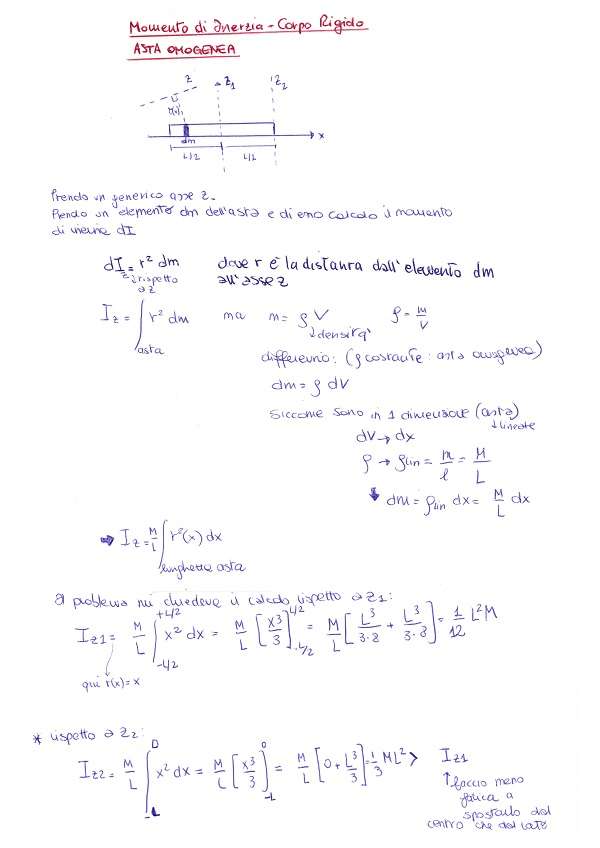 Momento di Inerzia - Corpo Rigido
ASTA OMOGENEA
z z1 z2
r(x)
dm x
L/2 L/2
Prendo un generico asse z.
Prendo un elemento dm dell'asta e di esso calcolo il momento
di inerzia dI
dIz = r² dm dove r è la distanza dall'elemento dm
↓ rispetto a z all'asse z
Iz = ∫asta r² dm ma m = ρ V ρ = M/V
↓ densità
differenzio: (ρ costante: asta omogenea)
dm = ρ dV
Siccome sono in 1 dimensione (asta)
↓ lineare
dV → dx
ρ → ρlin = m/l = M/L
↓ dm = ρlin dx = M/L dx
⇒ Iz = M/L ∫ r²(x) dx
lunghezza asta
Il problema mi chiedeva il calcolo rispetto a z1:
Iz1 = M/L ∫_{-L/2}^{+L/2} x² dx = M/L [x³/3]_{-L/2}^{L/2} = M/L [L³/3·8 + L³/3·8] = 1/12 L²M
qui r(x) = x
* rispetto a z2:
Iz2 = M/L ∫_{-L}^{0} x² dx = M/L [x³/3]_{-L}^{0} = M/L [0 + L³/3] = 1/3 ML² > Iz1
↑ faccio meno
fatica a
spostarlo dal
centro che dal lato